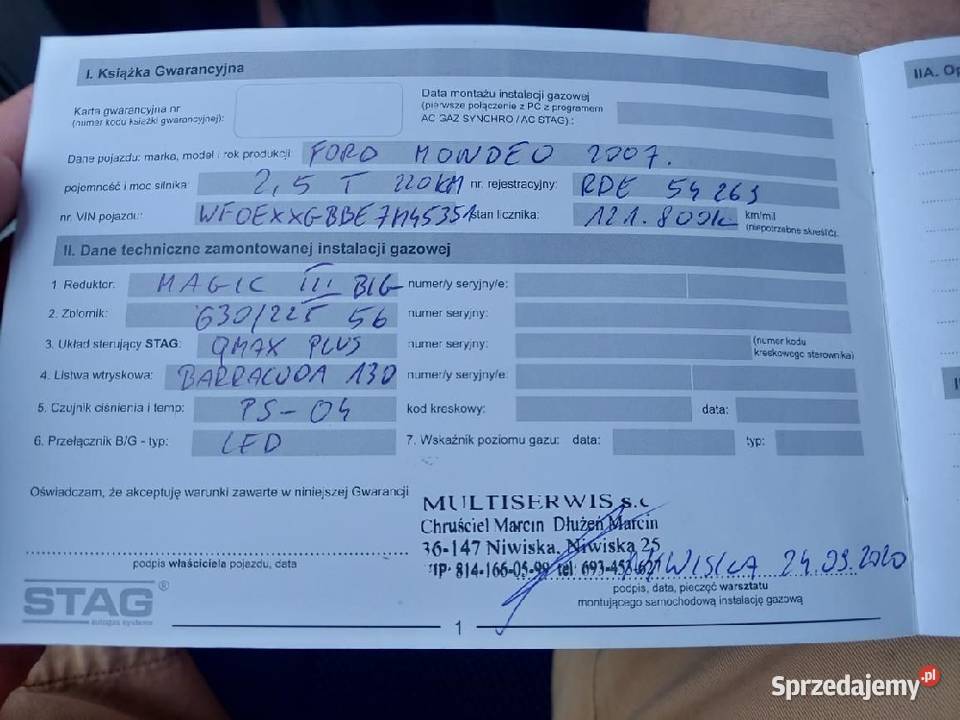 I. Książka Gwarancyjna
IIA. Op
Karta gwarancyjna nr
(numer kodu książki gwarancyjnej):
Data montażu instalacji gazowej
(pierwsze połączenie z PC z programem
AC GAZ SYNCHRO / AC STAG) :
Dane pojazdu: marka, model i rok produkcji: FORD MONDEO 2007.
pojemność i moc silnika: 2,5 T 220KM nr. rejestracyjny: RDE 54263
nr. VIN pojazdu: WF0EXXGBBE7M45351 stan licznika: 121.800k km/mil
(niepotrzebne skreślić)
II. Dane techniczne zamontowanej instalacji gazowej
1 Reduktor: MAGIC III BIG numer/y seryjny/e:
2. Zbiornik: 630/225 56 numer seryjny:
3. Układ sterujący STAG: QMAX PLUS numer seryjny: (numer kodu
kreskowego sterownika)
4. Listwa wtryskowa: BARRACUDA 130 numer/y seryjny/e:
5. Czujnik ciśnienia i temp: PS-04 kod kreskowy: data:
6. Przełącznik B/G - typ: LED 7. Wskaźnik poziomu gazu: data: typ:
Oświadczam, że akceptuję warunki zawarte w niniejszej Gwarancji
MULTISERWIS s.c
Chruściel Marcin Dłużeń Marcin
36-147 Niwiska, Niwiska 25
NIP: 814-166-05-99 tel. 693-453-627
NIWISKA 24.09.2020
podpis właściciela pojazdu, data
podpis, data, pieczęć warsztatu
montującego samochodową instalację gazową
STAG®
autogas systems
1
Sprzedajemy.pl